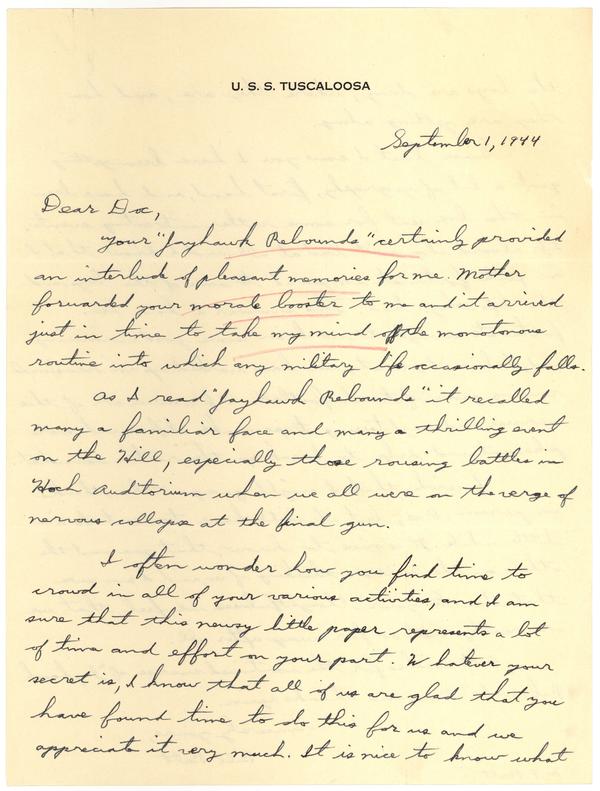 U. S. S. TUSCALOOSA
September 1, 1944
Dear Doc,
Your "Jayhawk Rebounds" certainly provided
an interlude of pleasant memories for me. Mother
forwarded your morale booster to me and it arrived
just in time to take my mind off the monotonous
routine into which any military life occasionally falls.
As I read "Jayhawk Rebounds" it recalled
many a familiar face and many a thrilling event
on the Hill, especially those rousing battles in
Hoch Auditorium when we all were on the verge of
nervous collapse at the final gun.
I often wonder how you find time to
crowd in all of your various activities, and I am
sure that this newsy little paper represents a lot
of time and effort on your part. Whatever your
secret is, I know that all of us are glad that you
have found time to do this for us and we
appreciate it very much. It is nice to know what